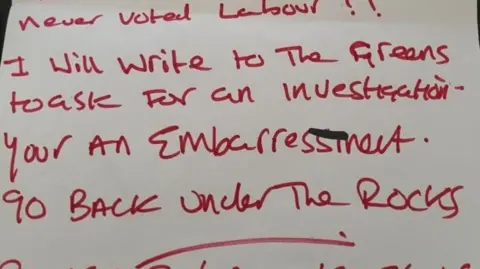 never voted Labour !!
I will write to The Greens
to ask For an investigation-
Your An Embarressment.
go BACK under The ROCKS